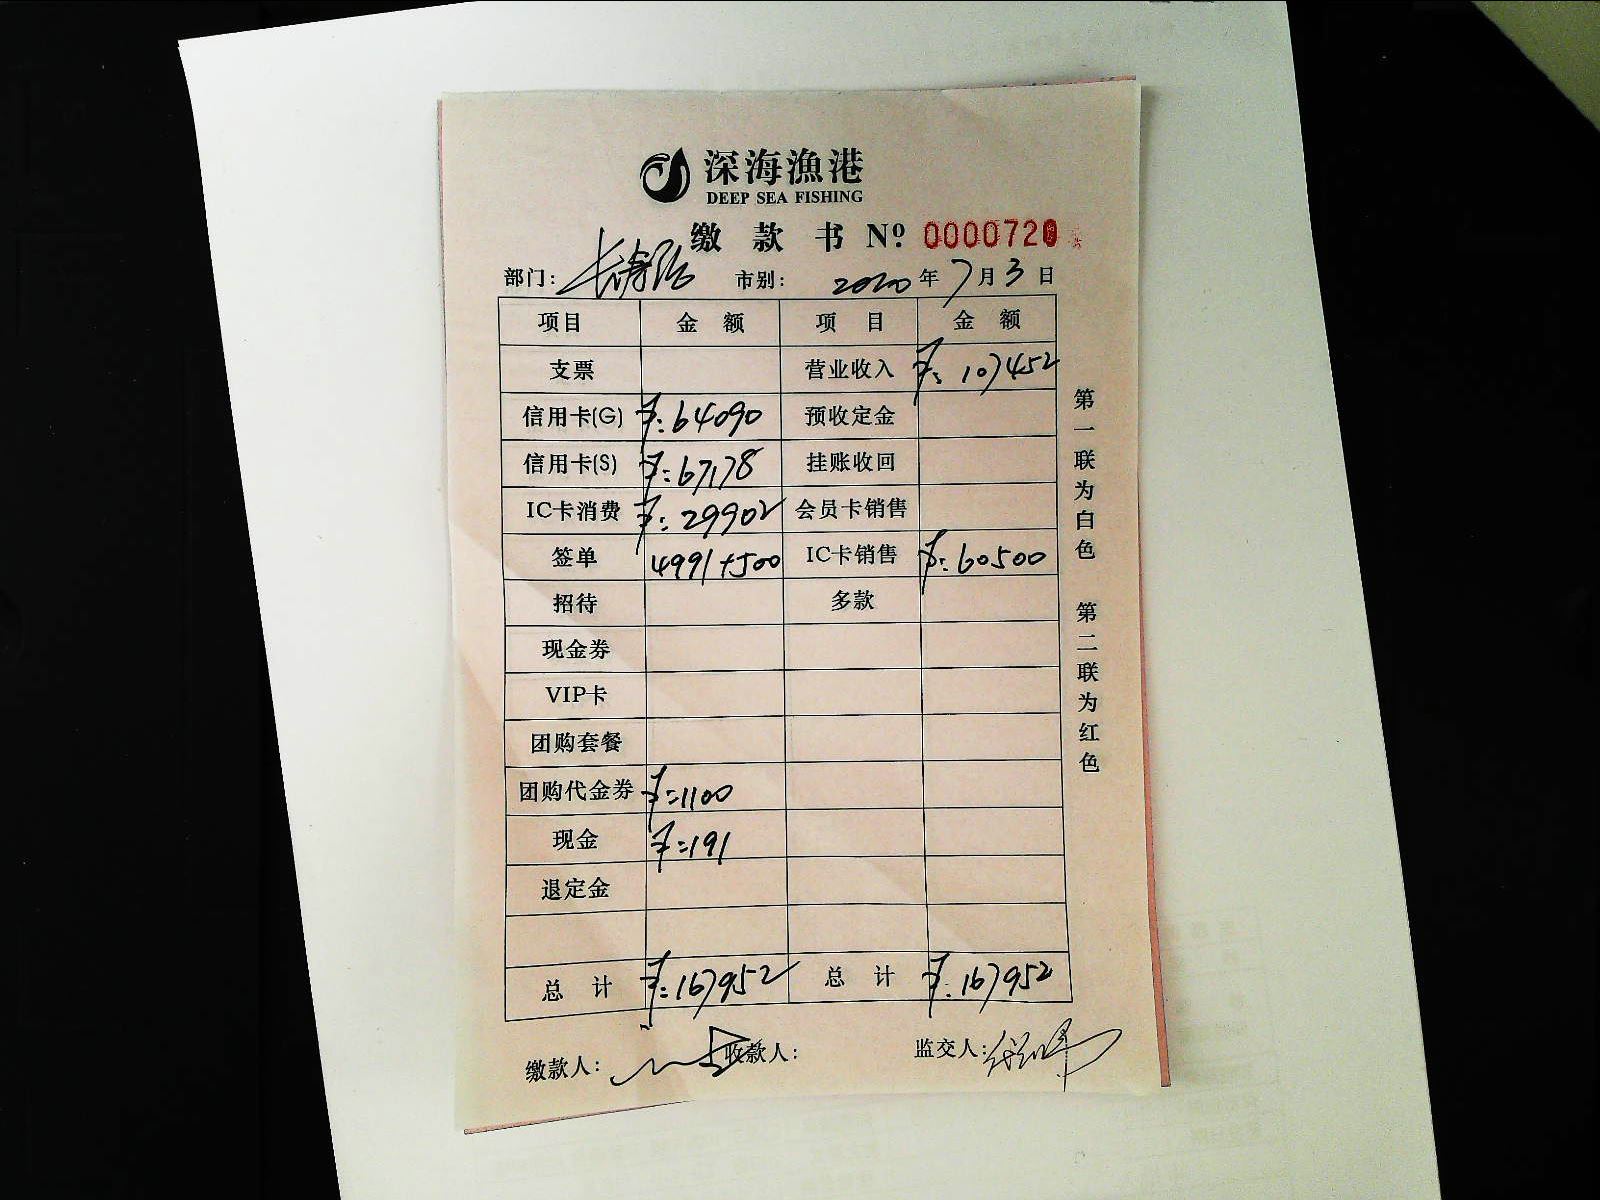 深海漁港
DEEP SEA FISHING
缴款书 Nº 0000720
部门: 市别: 2020年7月3日
项目 金额 项目 金额
支票 营业收入 ¥:107452
信用卡(G) ¥:64090 预收定金
信用卡(S) ¥:67178 挂账收回
IC卡消费 ¥:29902 会员卡销售
签单 4991+500 IC卡销售 ¥:60500
招待 多款
现金券
VIP卡
团购套餐
团购代金券 ¥:1100
现金 ¥:191
退定金
总计 ¥:167952 总计 ¥:167952
缴款人: 收款人: 监交人:
第一联为白色 第二联为红色